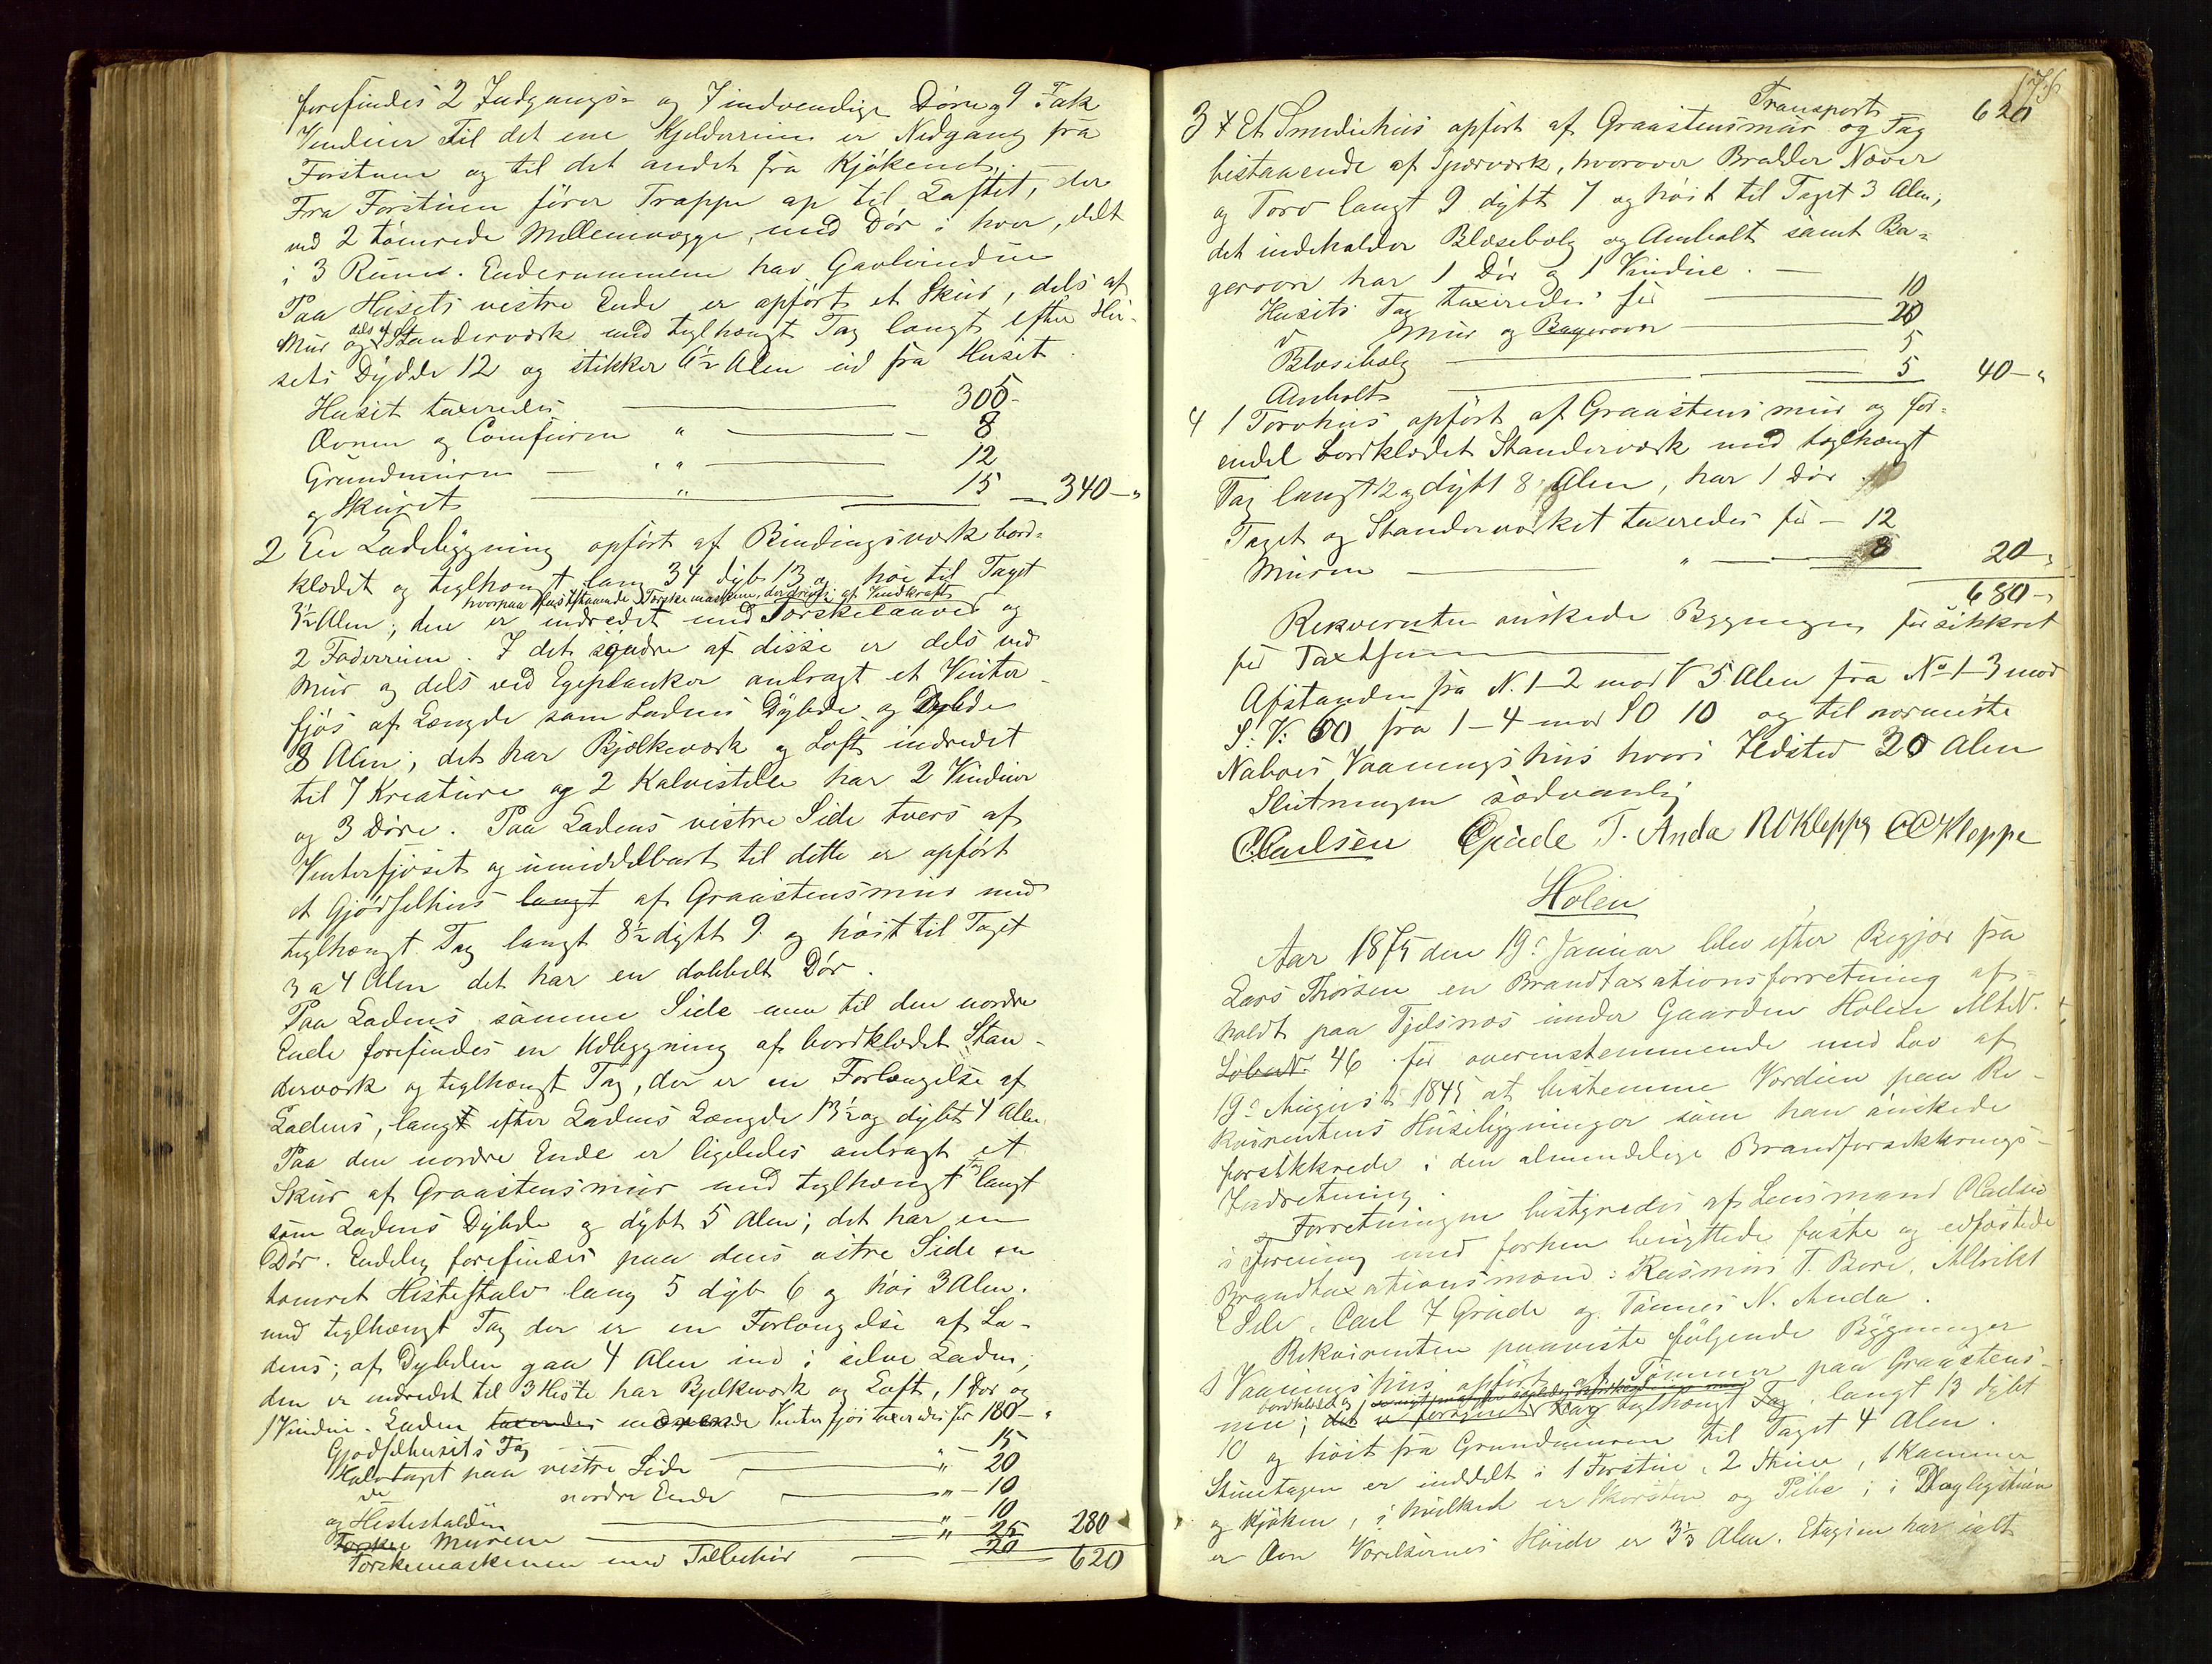 forefindes 2 Indgangs- og 7 indvendige Døre og 9 Fak
Vinduer Til det ene Kjelderrum er Nedgang fra
Forstuen og til det andet fra Kjøkenet.
Fra Forstuen fører Trappe op til Loftet, der
ved 2 tømrede Mellemvægge, med Dør i hver, delt
i 3 Rum. Enderummene har Gavlvindue
Paa Husets vestre Ende er opført et Skur, dels af
Mur og dels af Standerværk med teglhængt Tag langt efter Hu-
sets Dybde 12 og stikker 6½ Alen ud fra Huset.
Huset taxeredes 305-
Ovnen og Comfuren " 8
Grundmuren " 12
og Skuret " 15 340-"
2 En Ladebygning opført af Bindingsværk bord-
klædet og teglhængt lang 34 dyb 13 og høi til Taget
hvorpaa faststaaende Tærskemaskine, der drives af Vindkraft
3½ Alen; den er indredet med Tærskelaave og
2 Foderrum. I det søndre af disse er dels ved
Mur og dels ved Egeplanker anbragt et Vinter-
fjøs af Længde som Ladens Dybde og Dybde
8 Alen; det har Bjælkeværk og Loft, indredet
til 7 Kreature og 2 Kalvestelle har 2 Vinduer
og 3 Døre. Paa Ladens vestre Side tvers af
Vinterfjøset og umiddelbart til dette er opført
et Gjødselhus langt af Graastensmur med
teglhængt Tag langt 8½ dybt 9 og høit til Taget
3 a 4 Alen det har en dobbelt Dør.
Paa Ladens samme Side men til den nordre
Ende forefindes en Udbygning af bordklædet Stan-
derværk og teglhængt Tag, der er en Forlængelse af
Ladens, langt efter Ladens Længde 13½ og dybt 4 Alen
Paa den nordre Ende er ligeledes anbragt et
Skur af Graastensmur med teglhængt Tag langt
som Ladens Dybde og dybt 5 Alen; det har en
Dør. Endelig forefindes paa dens østre Side en
tømret Hestestald lang 5 dyb 6 og høi 3 Alen.
med teglhængt Tag der er en Forlængelse af La-
dens; af Dybden gaa 4 Alen ind i selve Laden;
den er indredet til 3 Heste har Bjelkeværk og Loft, 1 Dør og
1 Vindue. Laden taxeredes iberegnede Vinterfjøs taxeredes for 180-"
Gjødselhusets Tag 15
Halvtaget paa vestre Side " - 20
do nordre Ende " - 10
og Hestestalden " - 10 280
Tærske Murene " 25
Tærskemaskinen med Tilbehør 20 620
176
Transport 620
3 Et Smediehus opført af Graastensmur og Tag
bestaaende af Sperværk, hvorover Brædder Næver
og Torv langt 9 dybt 7 og høit til Taget 3 Alen,
det indeholder Blæsebælg og Ambolt samt Ba-
gerovn har 1 Dør og 1 Vindue.
Husets Tag taxeredes for 10
" Mur og Bagerovn 20
Blæsebælg 5
Ambolt 5 40-"
4 1 Torvhus opført af Graastensmur og for-
endel bordklædet Standerværk med teglhængt
Tag langt 12 og dybt 8 Alen, har 1 Dør
Taget og Standerværket taxeredes for - 12
Muren " 8 20-"
680-"
Rekvirenten ønskede Bygningen forsikkret
for Taxtsum
Afstanden fra N. 1-2 mod V 5 Alen fra No 1-3 mod
S.V. 60 fra 1-4 mod SO 10 og til nærmeste
Naboes Vaaningshus hvori Ildsted 20 Alen
Slutningen sædvanlig
CCarlsen CGrude T. Anda ROKleppe OCKleppe
Holen
Aar 1875 den 19de Januar blev efter Begjær fra
Lars Thorsen en Brandtaxationsforretning af-
holdt paa Tjelsnæs under Gaarden Holen Mtr.N.
LøbeN. 46 for overensstemmende med Lov af
19de August 1845 at bestemme Værdien paa Re-
kvirentens Husebygninger som han ønskede
forsikkrede i den almindelige Brandforsikkrings-
Indretning.
Forretningen bestyredes af Lensmand CCarlsen
i Forening med forhen benyttede faste og edfæstede
Brandtaxationsmænd: Rasmus T. Bore, Ullrikt
E Sele, Carl F Grude og Tønnes N. Anda.
Rekvirenten paaviste følgende Bygninger
1 Vaaningshus opført af Tømmer paa Graastens-
mur; bordklædt og teglhængt Tag, langt 13 dybt
10 og høit fra Grundmuren til Taget 4 Alen.
Stuetagen er inddelt i 1 Forstue, 2 Stuer, 1 Kammer
og Kjøken, i hvilket er Skorsten og Pibe; i Dagligstuen
er Ovn Værelsernes Høide er 3⅓ Alen. Etagien har ialt